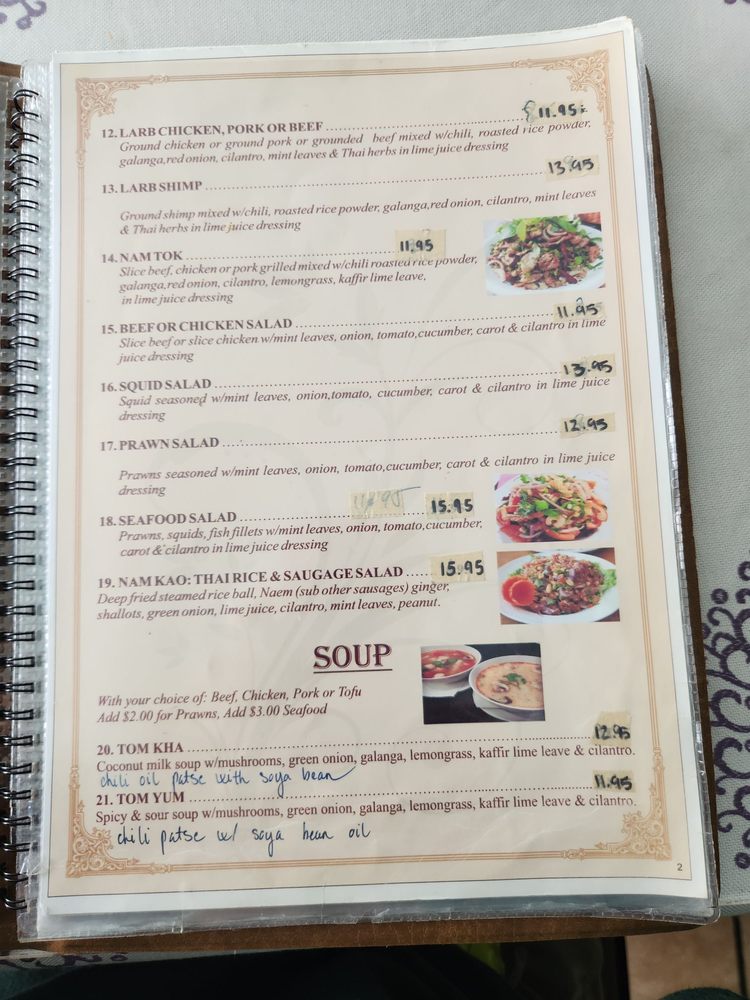 12. LARB CHICKEN, PORK OR BEEF 11.95
Ground chicken or ground pork or grounded beef mixed w/chili, roasted rice powder,
galanga,red onion, cilantro, mint leaves & Thai herbs in lime juice dressing
13. LARB SHIMP 13.95
Ground shimp mixed w/chili, roasted rice powder, galanga,red onion, cilantro, mint leaves
& Thai herbs in lime juice dressing
14. NAM TOK 11.95
Slice beef, chicken or pork grilled mixed w/chili roasted rice powder,
galanga,red onion, cilantro, lemongrass, kaffir lime leave,
in lime juice dressing
15. BEEF OR CHICKEN SALAD 11.95
Slice beef or slice chicken w/mint leaves, onion, tomato,cucumber, carot & cilantro in lime
juice dressing
16. SQUID SALAD 13.95
Squid seasoned w/mint leaves, onion,tomato, cucumber, carot & cilantro in lime juice
dressing
17. PRAWN SALAD 12.95
Prawns seasoned w/mint leaves, onion, tomato,cucumber, carot & cilantro in lime juice
dressing
18. SEAFOOD SALAD 15.95
Prawns, squids, fish fillets w/mint leaves, onion, tomato,cucumber,
carot & cilantro in lime juice dressing
19. NAM KAO: THAI RICE & SAUGAGE SALAD 15.95
Deep fried steamed rice ball, Naem (sub other sausages) ginger,
shallots, green onion, lime juice, cilantro, mint leaves, peanut.
SOUP
With your choice of: Beef, Chicken, Pork or Tofu
Add $2.00 for Prawns, Add $3.00 Seafood
20. TOM KHA 12.95
Coconut milk soup w/mushrooms, green onion, galanga, lemongrass, kaffir lime leave & cilantro.
chili oil patse with soya bean
21. TOM YUM 11.95
Spicy & sour soup w/mushrooms, green onion, galanga, lemongrass, kaffir lime leave & cilantro.
chili patse w/ soya bean oil
2